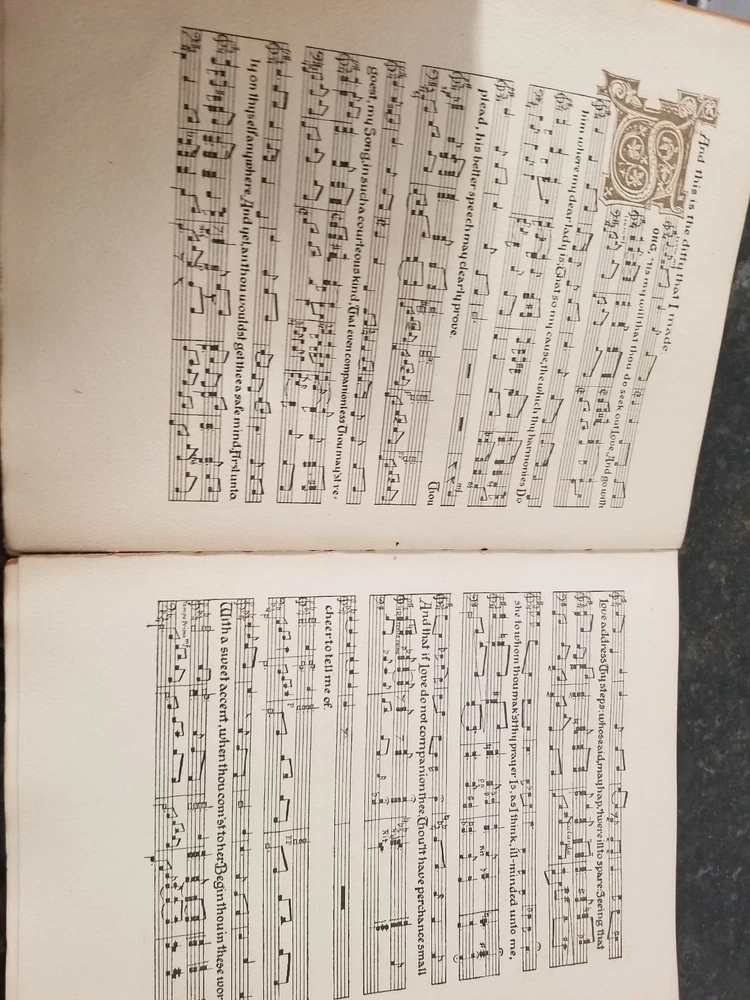 And this is the ditty that I made
SONG, 'tis my will that thou do seek out Love, And go with
him where my dear lady is; That so my cause, the which thy harmonies Do
plead, his better speech may clearly prove.
Thou
goest, my Song, in such a courteous kind, That even companionless Thou may'st re-
ly on thyself anywhere. And yet, an thou wouldst get thee a safe mind, First unto
Love address Thy steps; whose aid, mayhap, 'twere ill to spare. Seeing that
she to whom thou mak'st thy prayer Is, as I think, ill-minded unto me,
And that if Love do not companion thee, Thou'lt have perchance small
cheer to tell me of.
With a sweet accent, when thou com'st to her, Begin thou in these wor
mf
pp
Rit
P
PP
Tempo Primo mf